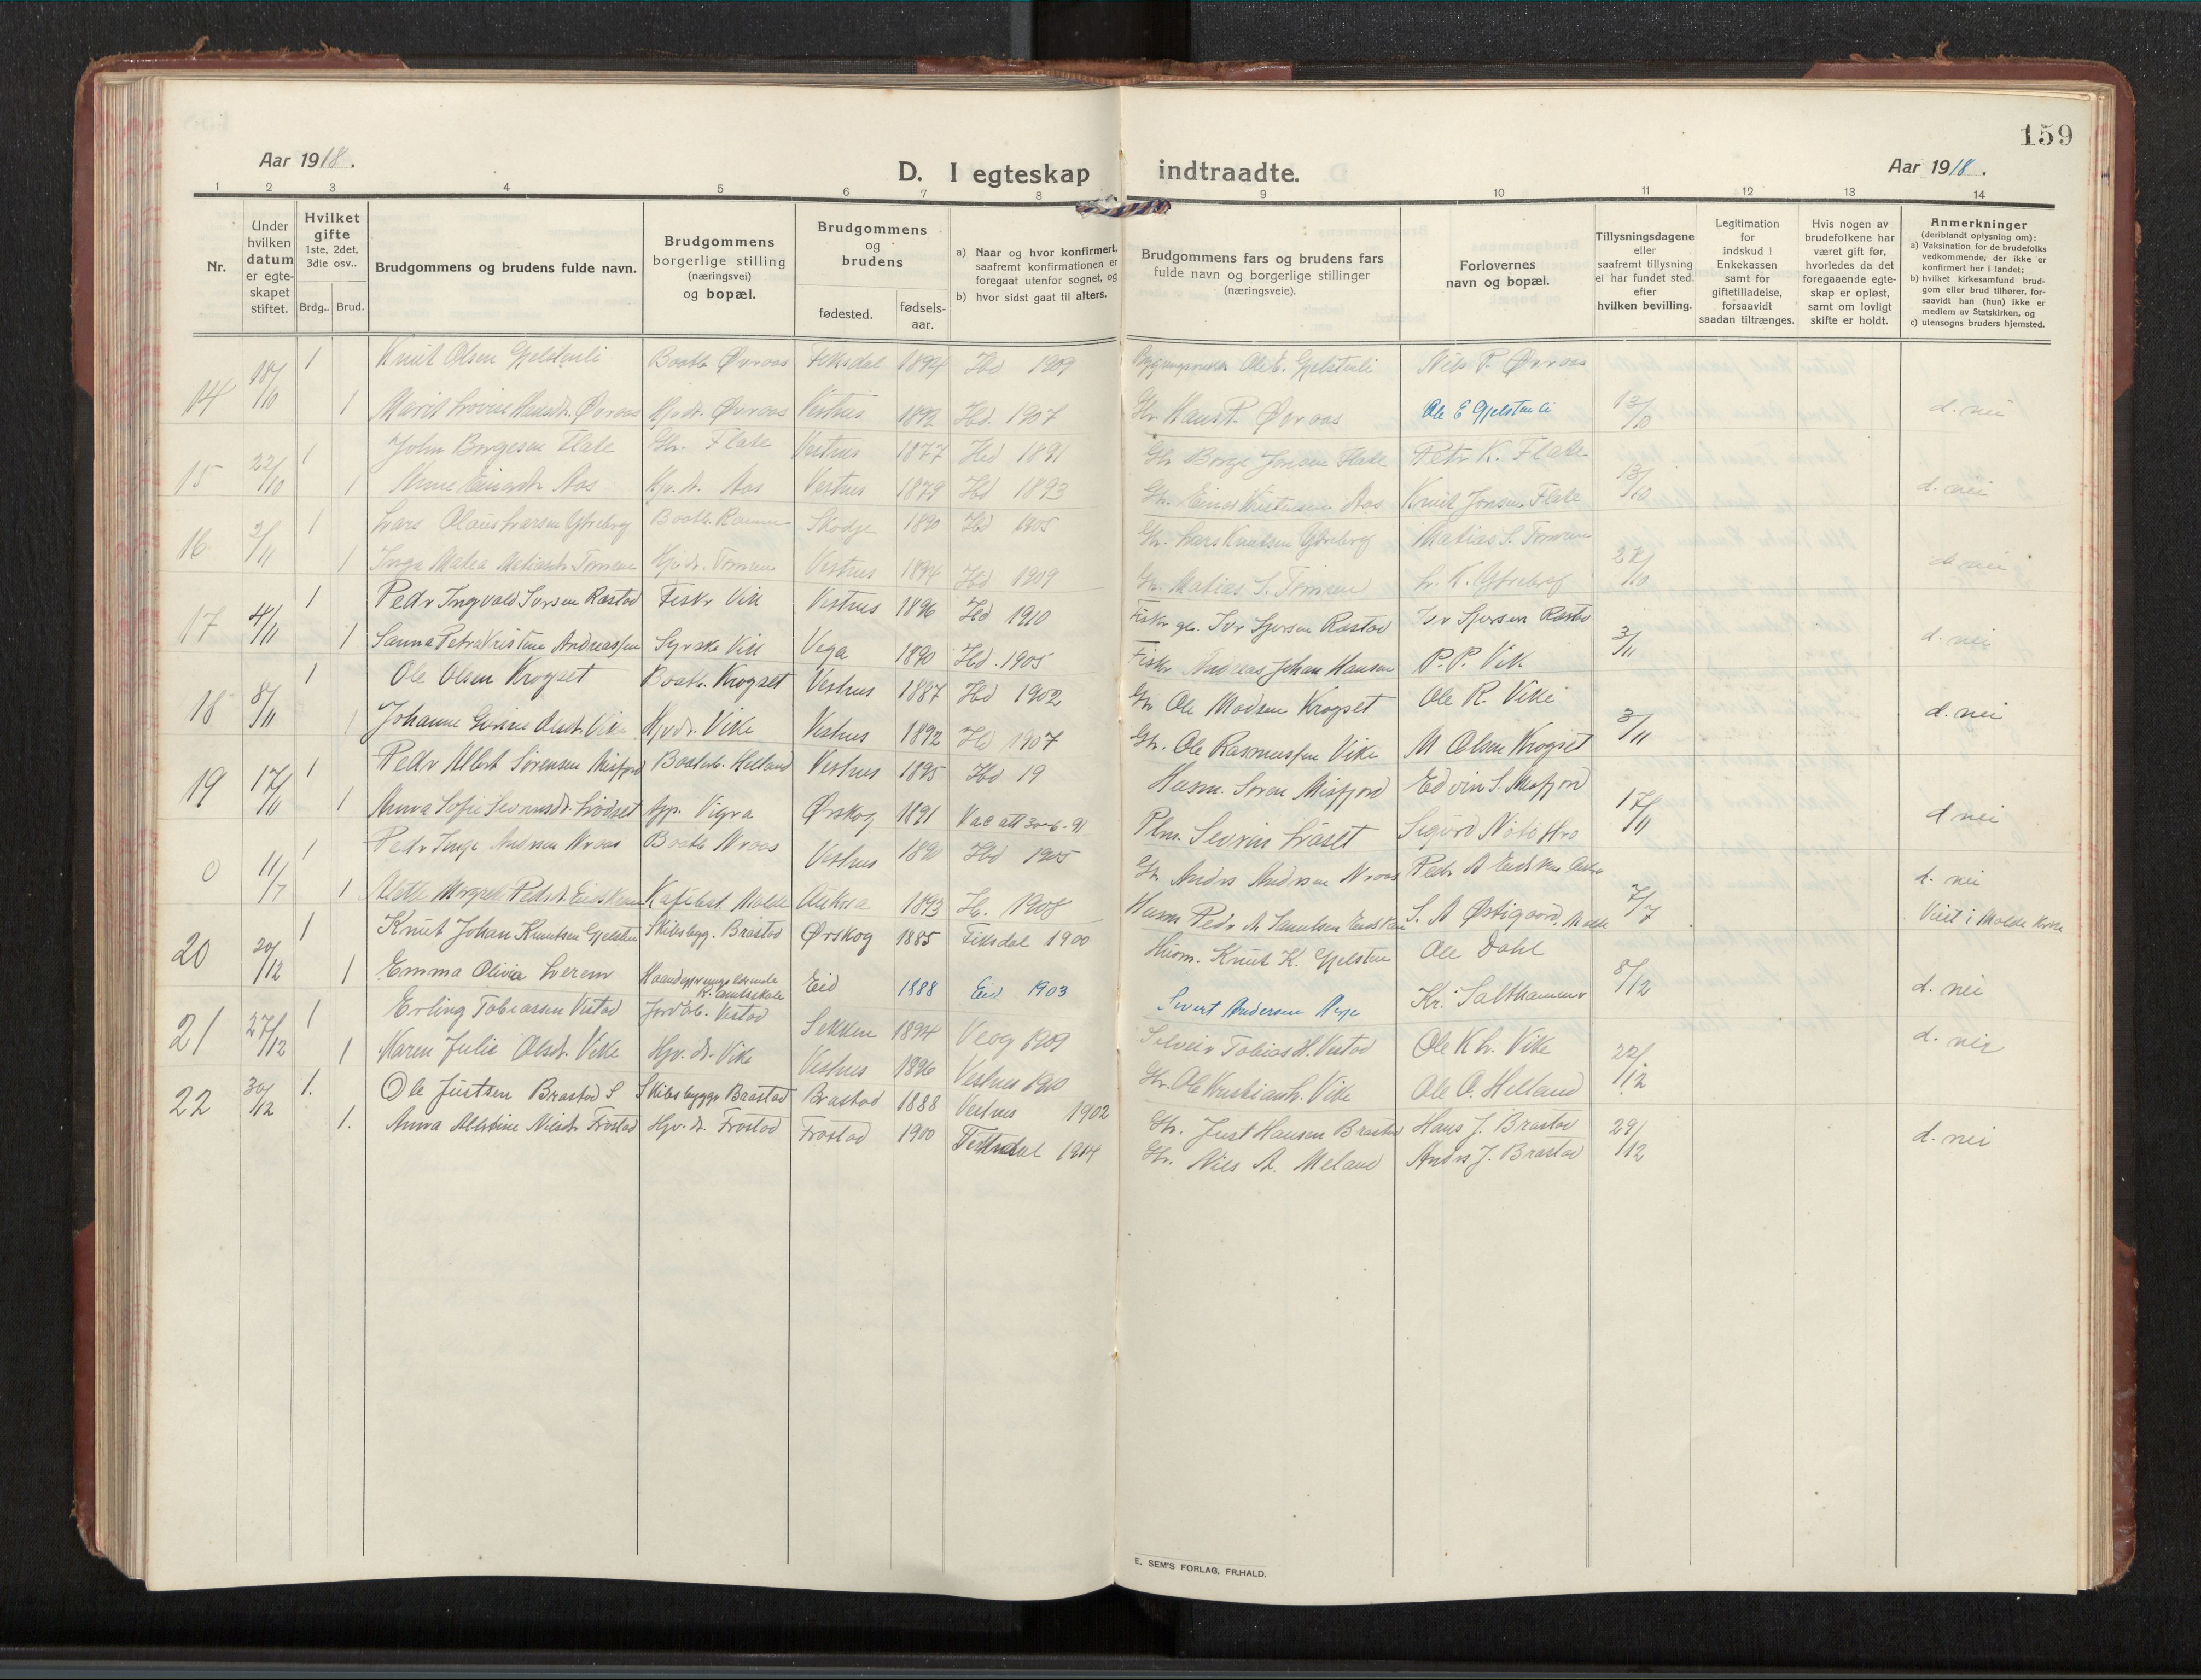 159
Aar 1918.
D. I egteskap indtraadte.
Aar 1918.
1 2 3 4 5 6 7 8 9 10 11 12 13 14
Nr.
Under hvilken datum er egteskapet stiftet.
Hvilket gifte 1ste, 2det, 3die osv..
Brdg.. Brud.
Brudgommens og brudens fulde navn.
Brudgommens borgerlige stilling (næringsvei) og bopæl.
Brudgommens og brudens
fødested. fødselsaar.
a) Naar og hvor konfirmert, saafremt konfirmationen er foregaat utenfor sognet, og
b) hvor sidst gaat til alters.
Brudgommens fars og brudens fars fulde navn og borgerlige stillinger (næringsveie).
Forlovernes navn og bopæl.
Tillysningsdagene eller saafremt tillysning ei har fundet sted. efter hvilken bevilling.
Legitimation for indskud i Enkekassen samt for giftetilladelse, forsaavidt saadan tiltrænges.
Hvis nogen av brudefolkene har været gift før, hvorledes da det foregaaende egteskap er opløst, samt om lovligt skifte er holdt.
Anmerkninger (deriblandt oplysning om):
a) Vaksination for de brudefolks vedkommende, der ikke er konfirmert her i landet;
b) hvilket kirkesamfund brudgom eller brud tilhører, forsaavidt han (hun) ikke er medlem av Statskirken, og
c) utensogns bruders hjemsted.
14 18/10 1 Knut Olsen Gjelstenli Baatb. Øvraas Fiksdal 1894 Hd 1909 Ole E. Gjelstenli Nils P. Øvraas
1 Marit Lovise Hansdt. Øvraas Hjv.dt. Øvraas Vestnes 1892 Hd. 1907 Gbr. Hans P. Øvraas Ole E Gjelstenli 13/10 d. nei
15 22/10 1 John Børgesen Flate Gbr. Flate Vestnes 1877 Hd 1891 Gbr Børge Jonsen Flate Petr K. Flate
1 Anne Einarsdt. Aas Hjv.dt. Aas Vestnes 1879 Hd 1893 Gbr. Einar Kristensen Aas Knut Jonsen Flate 13/10 d. nei
16 2/11 1 Lars Olaus Larsen Ytreberg Baatb. Skodje 1890 Hd 1905 Gbr. Lars Knutsen Ytreberg Matias S. Tomren
1 Inga Matea Matiasdt. Tomren Hjv.dt. Tomren Vestnes 1894 Hd 1909 Gbr. Matias S. Tomren L. K. Ytreberg 27/10 d. nei
17 4/11 1 Pedr Ingvald Iversen Rastad Fiskr Vik Vestnes 1896 Hd 1910 Iver Sjursen Rastad Iver Sjursen Rastad
1 Sanna Petra Kristine Andreassen Syrske Vik Vega 1890 Hd. 1905 Fiskr Andreas Johan Hansen P. P. Vik 3/11 d. nei
18 8/11 1 Ole Olsen Krogset Baatb. Krogset Vestnes 1887 Hd 1902 Gbr Ole Madsen Krogset Ole R. Vike
1 Johanne Olsdt. Vike Hjv.dt. Vike Vestnes 1892 Hd 1907 Gbr. Ole Rasmussen Vike M Olsen Krogset 3/11 d. nei
19 17/11 1 Pedr Albert Sørensen Misfjord Baatb. Helland Vestnes 1895 Hd 19 Husm. Søren Misfjord Edvin S. Misfjord
1 Anna Sofie Sevrinsdt. Vigra Ørskog 1891 Vac att 30-6-91 Plm. Sevrin Sigurd 17/11 d nei
0 11/7 1 Pedr Inge Andrsen Vraas Baatb Vraas Vestnes 1890 Hd 1905 Gb Andrs Andrsen Vraas
1 Alette Margrete Pedrsdt. Molde Aukra 1893 H. 1908 Husm Pedr S. A Østigaard, Molde 7/7 d. nei Viet i Molde kirke
20 20/12 1 Knut Johan Knutsen Gjelsten Skibsbyg. Brastad Ørskog 1885 Fiksdal 1900 Husm. Knut K. Gjelsten Ole Dahl
1 Emma Olivia R. amtsskole Eid 1888 Eid 1903 Sivert Andersen Kr. Salthammer 8/12 d. nei
21 27/12 1 Erling Tobiassen Vestad Jordb. Vestad Sekken 1894 Veøy 1909 Selveir Tobias H. Vestad Ole K L. Vike
1 Maren Julie Olsdt. Vike Hjv. dt. Vike Vestnes 1896 Vestnes 1910 Gbr. Ole Kristian L. Vike Ole O. Helland 22/12 d. nei
22 30/12 1. Ole Justsen Brastad S Skibsbyggr Brastad Brastad 1888 Vestnes 1902 Gbr. Just Hansen Brastad Hans J. Brastad
1. Anna Albertine Nilsdt Frostad Hjv. dt. Frostad Frostad 1900 Fiksdal 1914 Gbr. Nils A. Meland Andrs J. Brastad 29/12 d. nei
E. SEM'S FORLAG, FR.HALD.